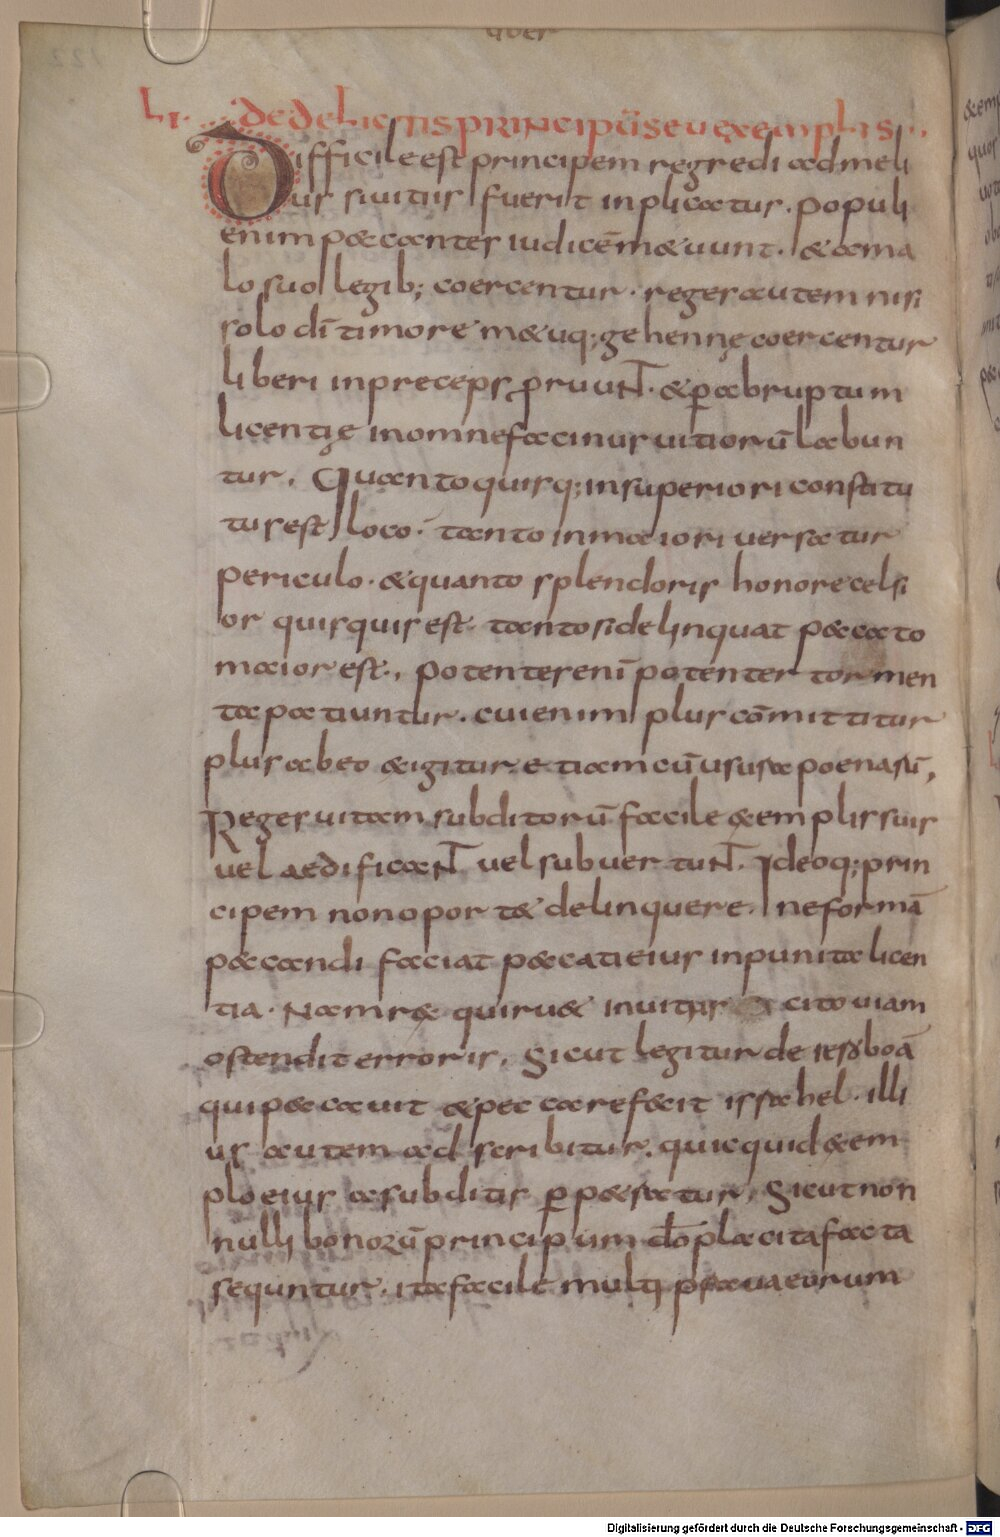 liber
LI. de delictis principum seu exemplis.
Difficile est principem regredi ad meli
us si uitiis fuerit inplicatur. populi
enim peccanter iudicē metuunt. & a ma
lo suo legib; coercentur. reger autem nisi
solo dī timore metuq; gehennę coercentur
liberi inpreceps pruunt. & p abruptum
licentię in omne facinus uitiorū labun
tur. Quanto quisq; in superiori constitu
tus est loco. tanto in maiori uersatur
periculo. & quanto splendoris honore celsi
or quisquis est. tanto si delinquat peccato
maior est. potenter enī potenter tormen
ta patiuntur. cui enim plus cōmittitur
plus ab eo exigitur etiam cū usura poenarū,
Reges uitam subditorū facile exemplis suis
uel aedificant uel subuertunt. Ideoq; prin
cipem non oportet delinquere. ne formā
peccandi faciat peccati eius inpunita licen
tia. Nam rex qui ruet in uitiis cito uiam
ostendit erroris. Sicut legitur de ieroboā
qui peccauit & peccare fecit israhel. illi
us autem adscribitur. quicquid exem
plo eius a subditis ppetratur. Sicut non
nulli bonorū principum dō placita facta
sequntur. ita facile multi praua eorum
Digitalisierung gefördert durch die Deutsche Forschungsgemeinschaft - DFG